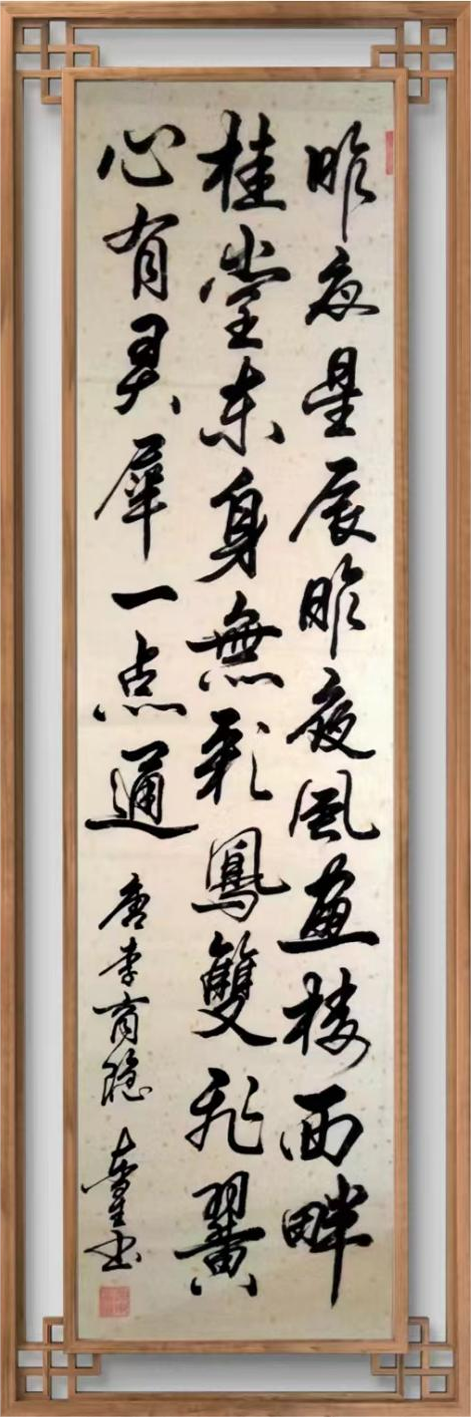 昨夜星辰昨夜風畫楼西畔
桂堂东身無彩鳳雙飛翼
心有灵犀一点通 唐李商隐 书